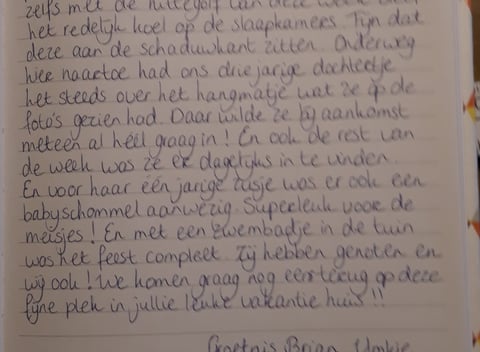 zelfs met de hittegolf van deze week bleef
het redelijk koel op de slaapkamers. Fijn dat
deze aan de schaduwkant zitten. Onderweg
hier naartoe had ons driejarige dochtertje
het steeds over het hangmatje wat ze op de
foto's gezien had. Daar wilde ze bij aankomst
meteen al héél graag in! En ook de rest van
de week was ze er dagelijks in te vinden.
En voor haar één jarige zusje was er ook een
babyschommel aanwezig. Superleuk voor de
meisjes! En met een zwembadje in de tuin
was het feest compleet. Zij hebben genoten en
wij ook! We komen graag nog eens terug op deze
fijne plek in jullie leuke vakantie huis!!
Groetjes Brian,